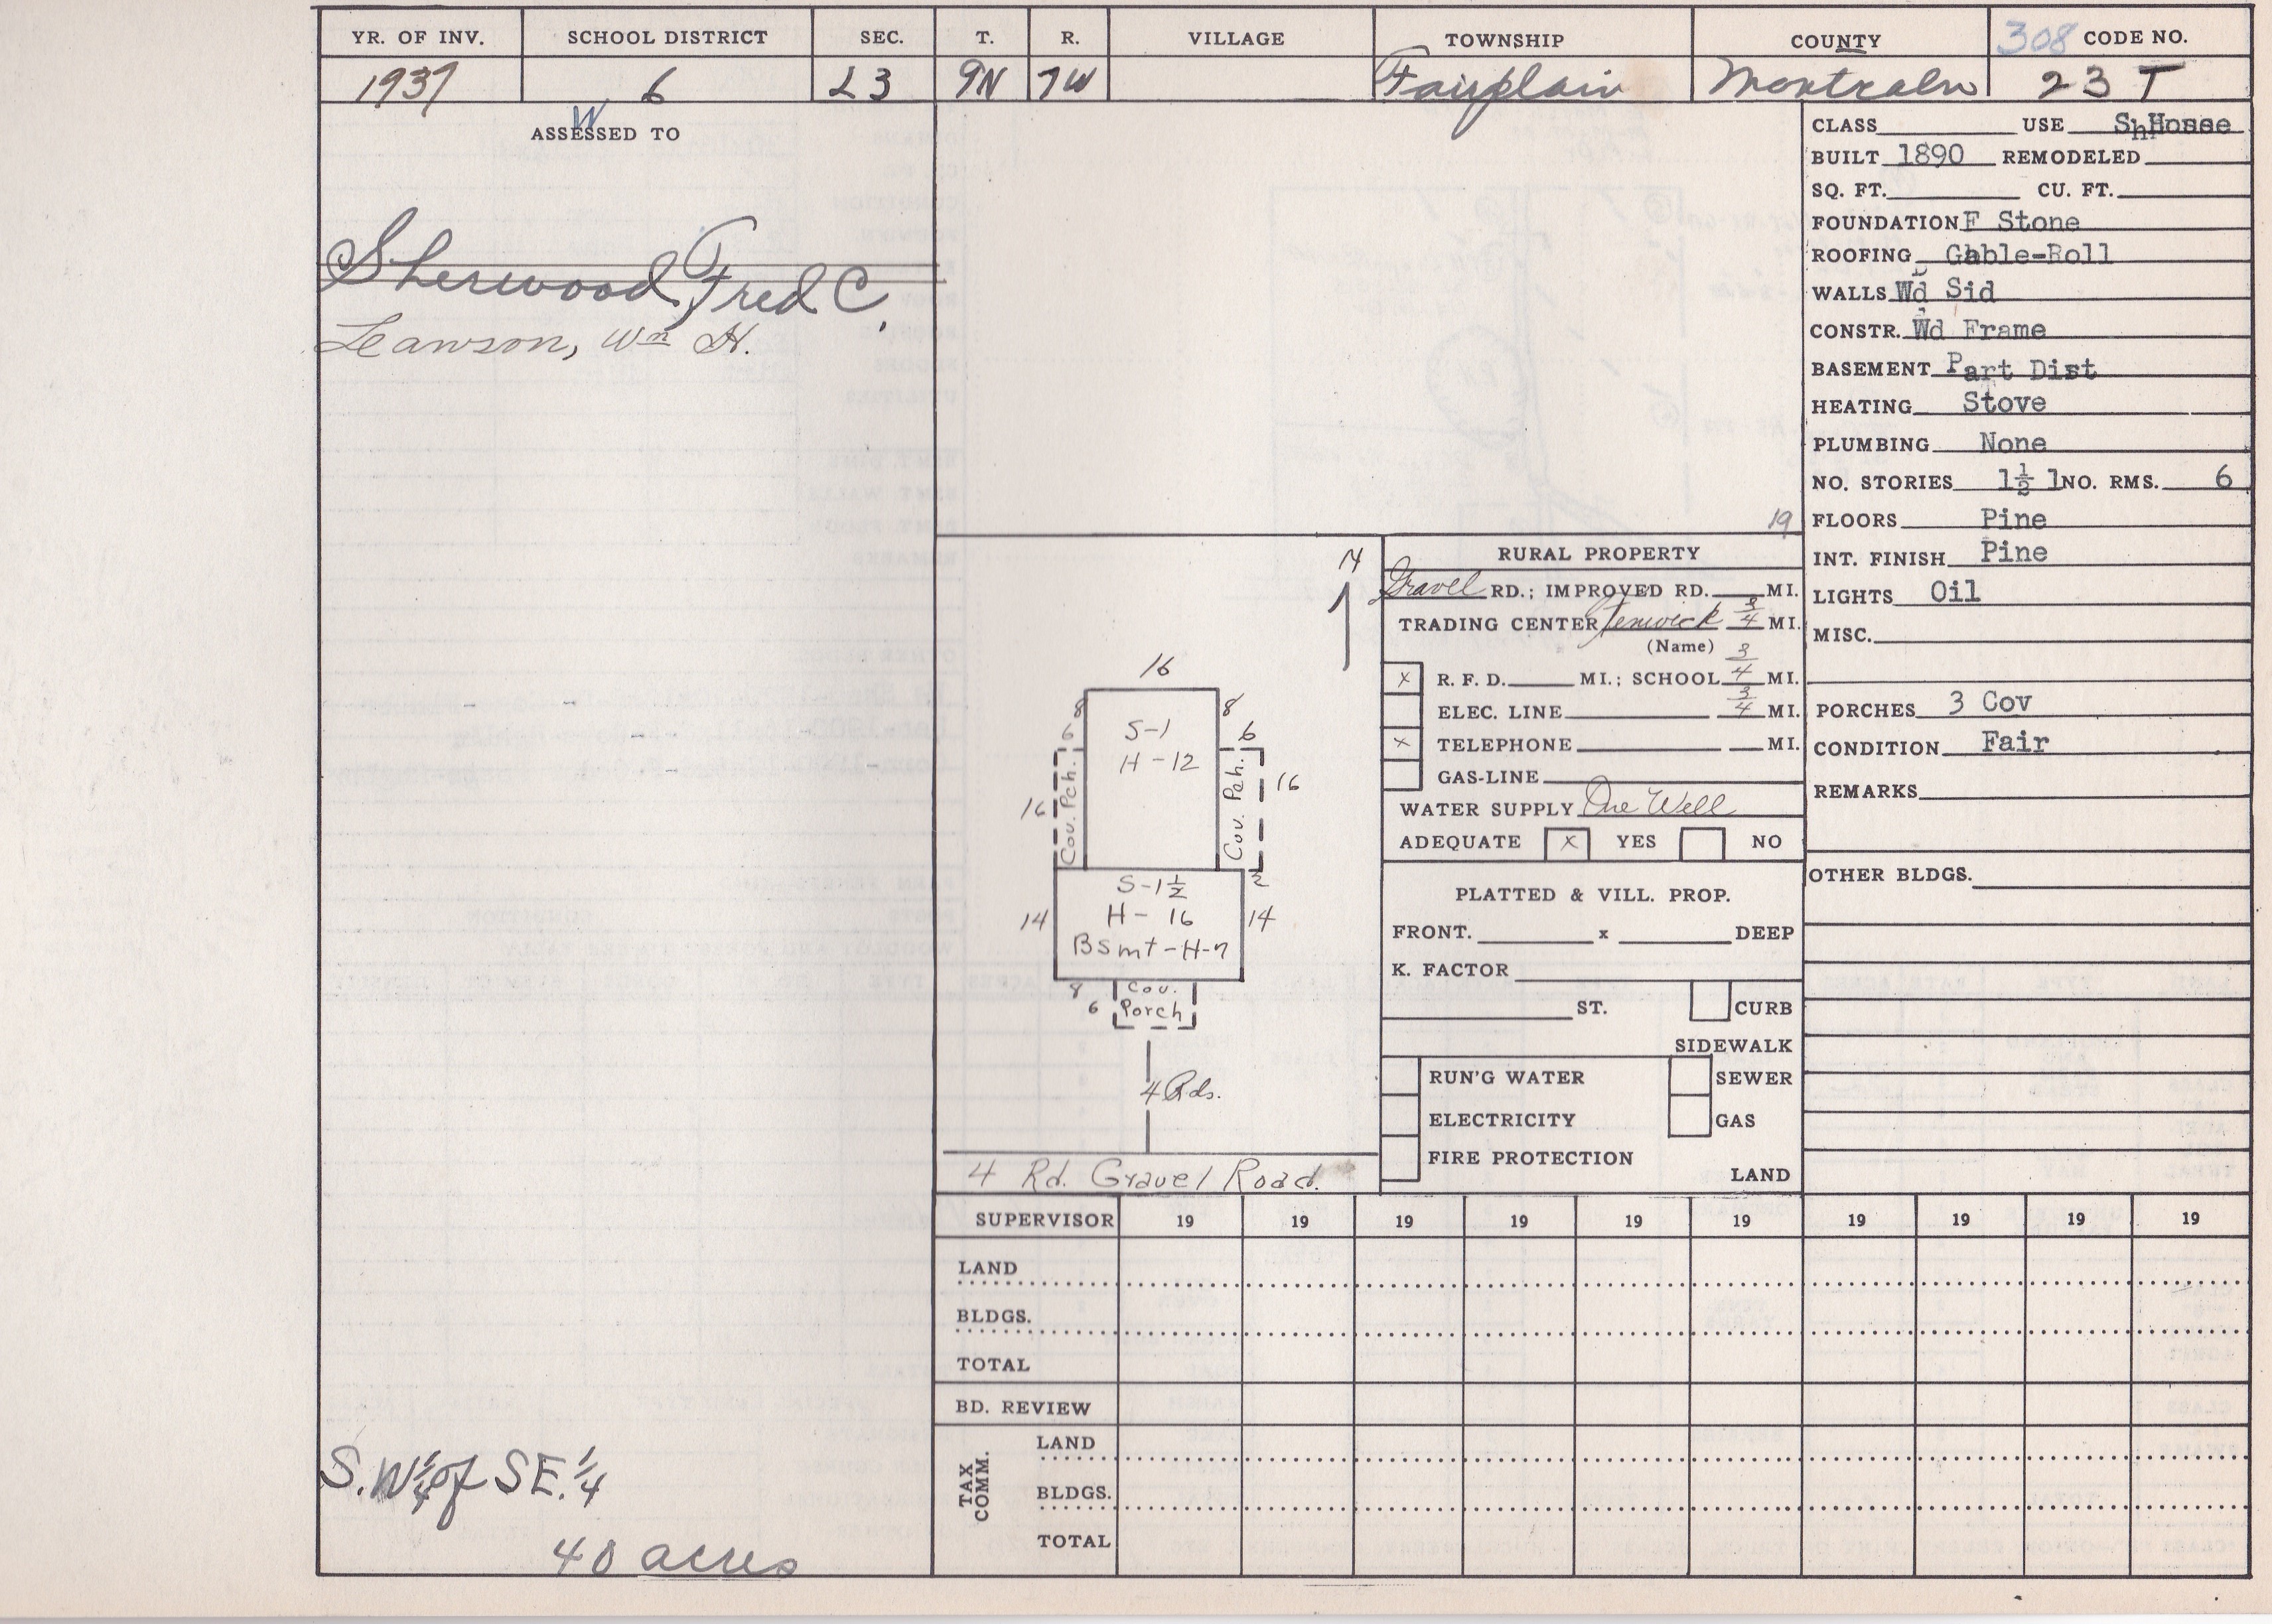 YR. OF INV. SCHOOL DISTRICT SEC. T. R. VILLAGE TOWNSHIP COUNTY 308 CODE NO.
1937 6 23 9N 7W Fairplain Montcalm 23 T
W
ASSESSED TO
Sherwood, Fred C.
Leawson, Wm H.
S.W 1/4 of SE. 1/4
40 acres
CLASS USE House
BUILT 1890 REMODELED
SQ. FT. CU. FT.
FOUNDATION F Stone
ROOFING Gable-Roll
WALLS Wd Sid
CONSTR. Wd Frame
BASEMENT Part Dist
HEATING Stove
PLUMBING None
NO. STORIES 1½ 1 NO. RMS. 6
FLOORS Pine
INT. FINISH Pine
LIGHTS Oil
MISC.
PORCHES 3 Cov
CONDITION Fair
REMARKS
OTHER BLDGS.
19
N
16
8 8
S-1
6 6
H-12
16 Cov. Pch. Cov. Pch. 16
S-1½ 2
14 H- 16 14
Bsmt-H-7
8 Cov.
6 Porch
4 Rds.
4 Rd. Gravel Road.
RURAL PROPERTY
Gravel RD.; IMPROVED RD. MI.
TRADING CENTER Fenwick 3/4 MI.
(Name)
x R. F. D. MI.; SCHOOL 3/4 MI.
ELEC. LINE 3/4 MI.
x TELEPHONE MI.
GAS-LINE
WATER SUPPLY One Well
ADEQUATE x YES NO
PLATTED & VILL. PROP.
FRONT. x DEEP
K. FACTOR
ST. CURB
SIDEWALK
RUN'G WATER SEWER
ELECTRICITY GAS
FIRE PROTECTION
LAND
SUPERVISOR 19 19 19 19 19 19 19 19 19 19
LAND
BLDGS.
TOTAL
BD. REVIEW
TAX COMM.
LAND
BLDGS.
TOTAL